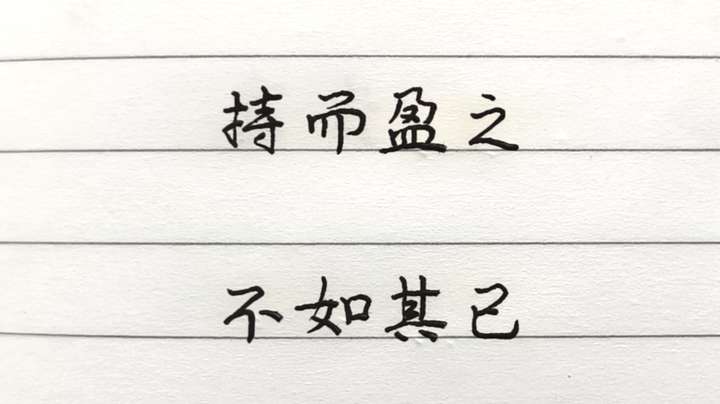 持而盈之
不如其已